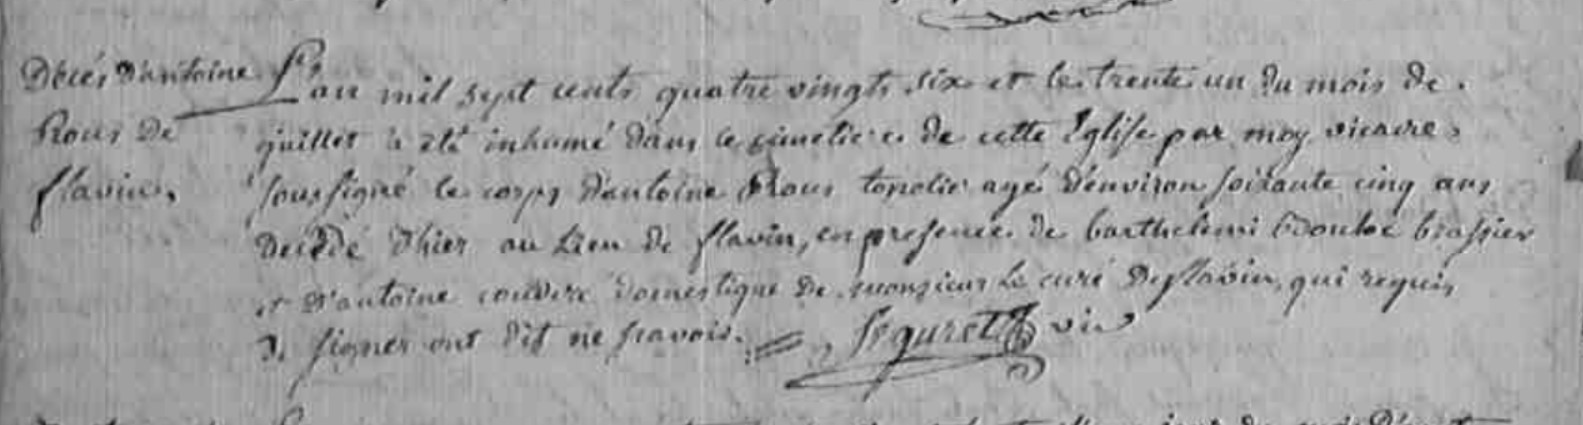 Décés d'antoine
Rous de
flavin.
L'an mil sept cents quatre vingts six et le trente un du mois de
juillet a été inhumé dans le cimetiere de cette Eglise par moy vicaire
soussigné le corps d'antoine Rous agé d'environ soixante cinq ans
decédé d'hier au Lieu de flavin, en presence de barthelemi brassier
et d'antoine couderc domestique de monsieur le curé de flavin, qui requis
de signer ont dit ne scavoir. Seguret vic